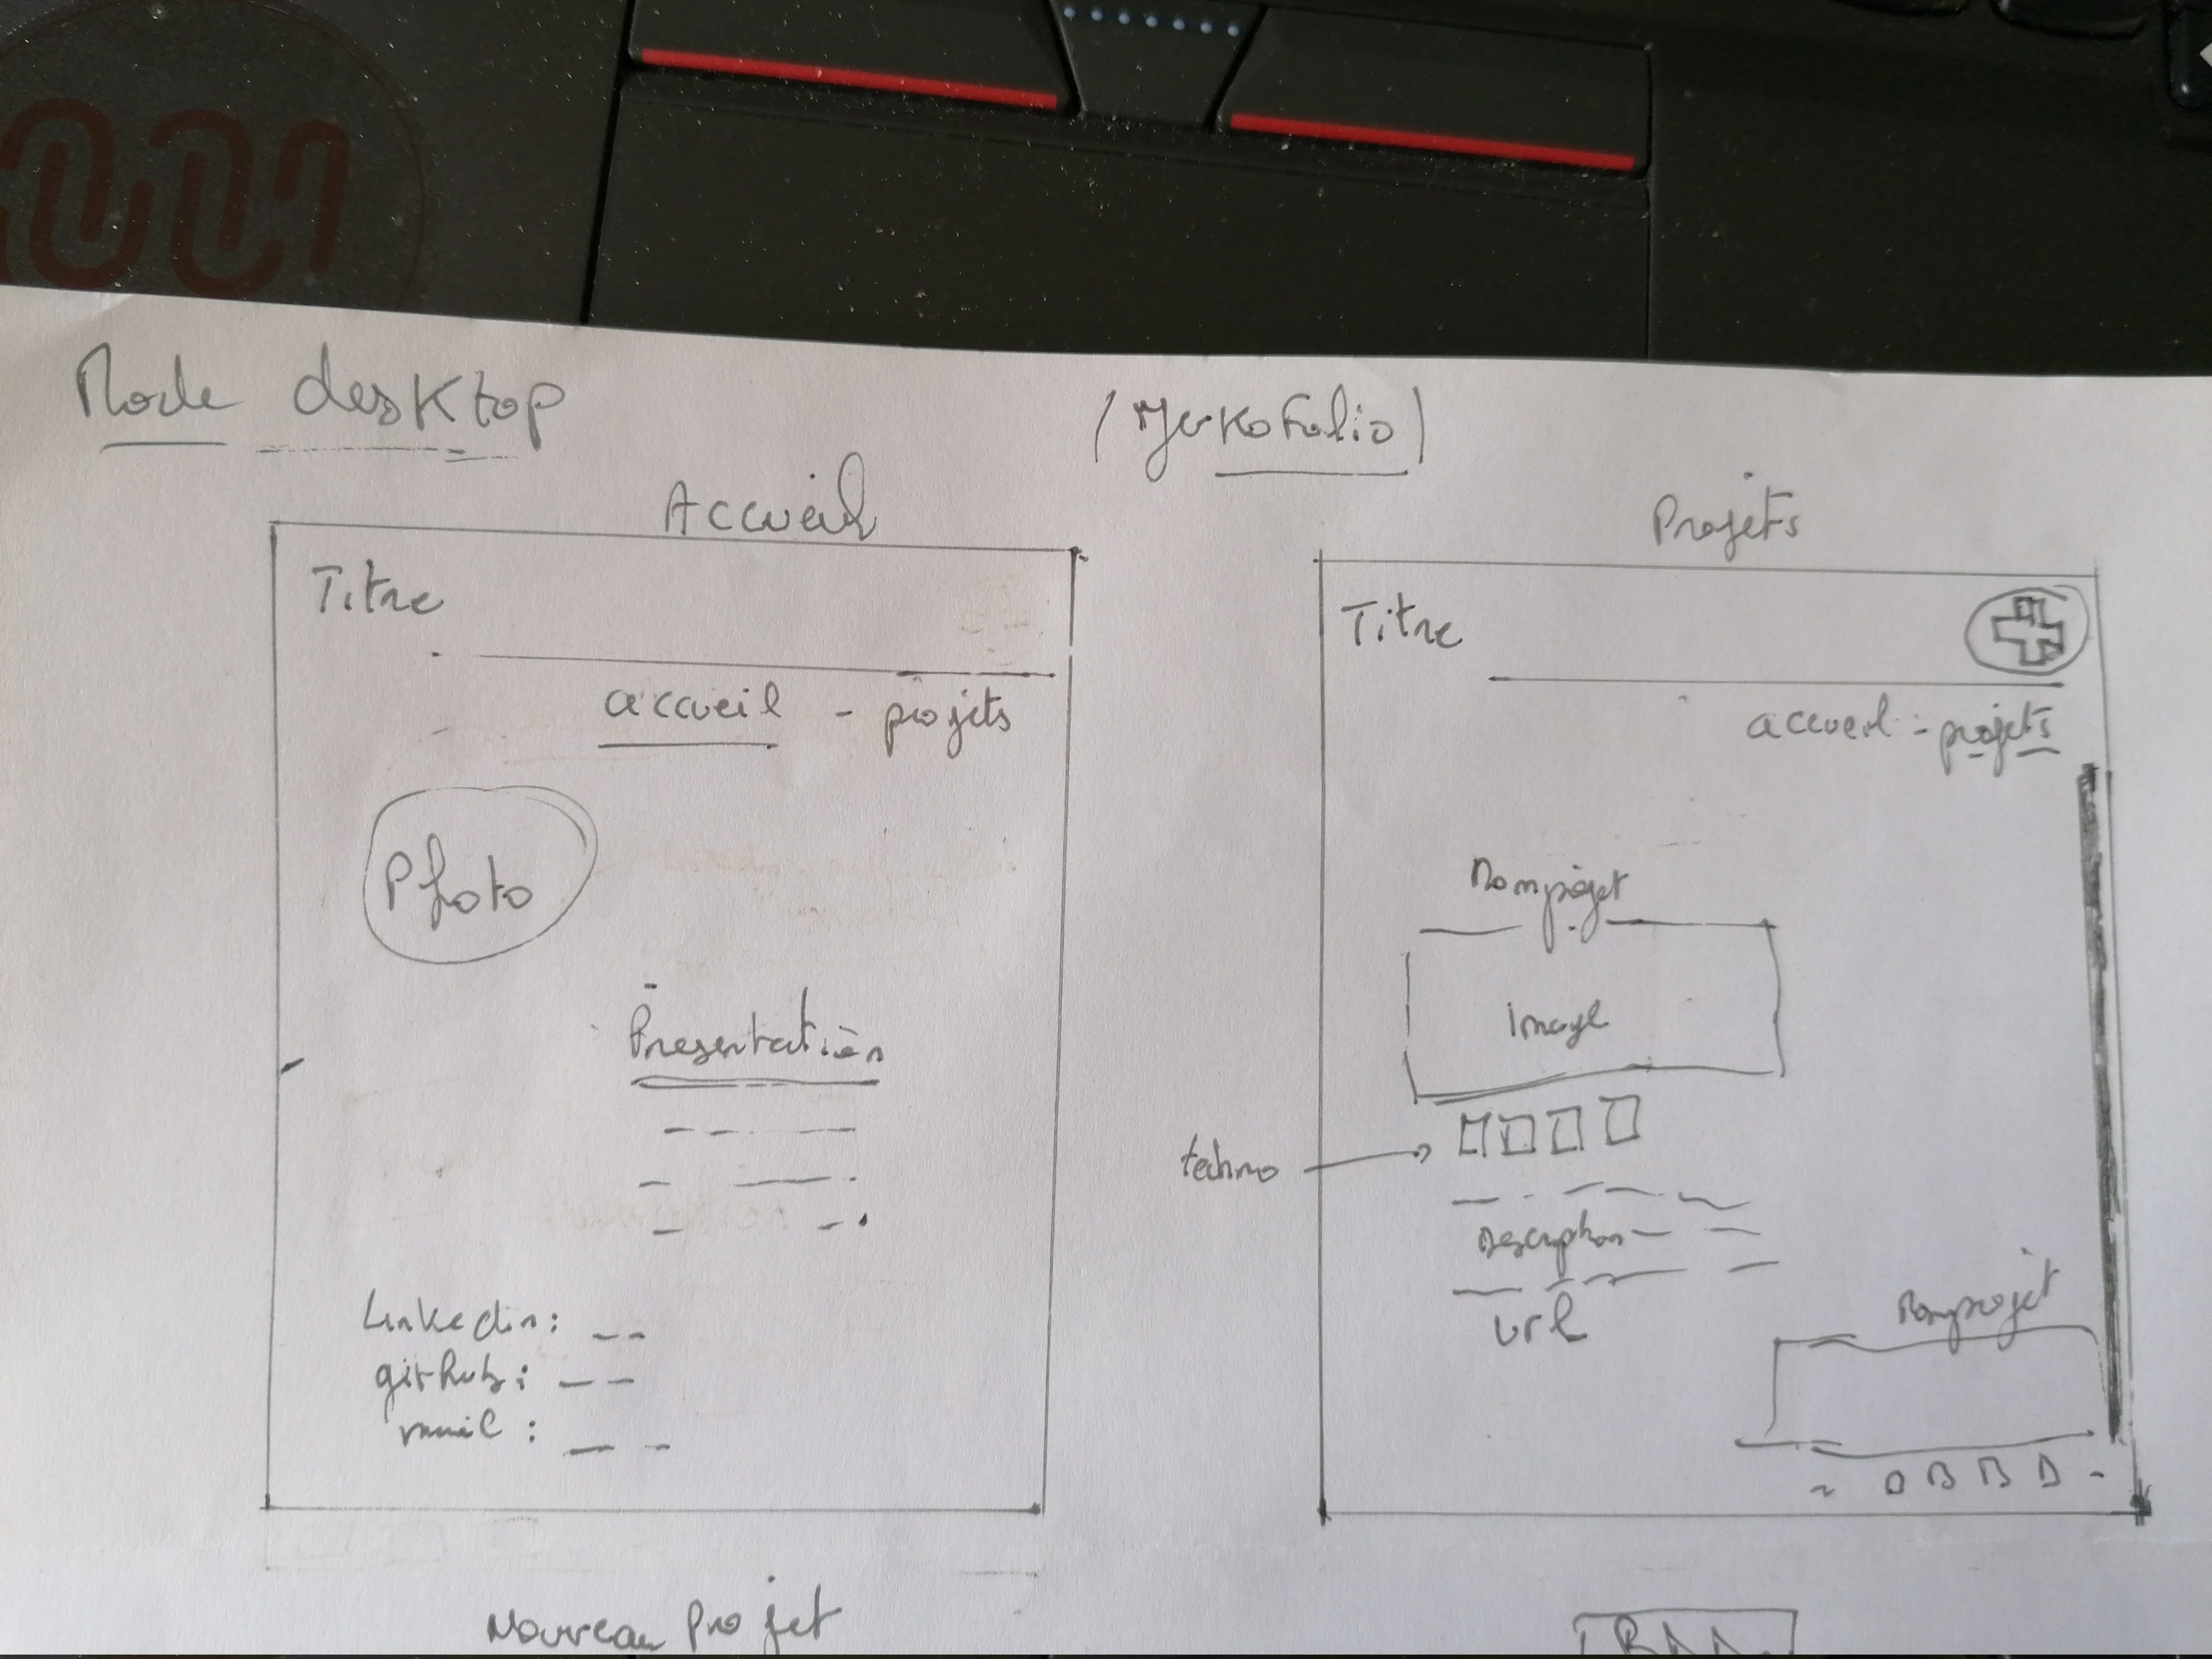 Mode desktop
(MerkoFolio)
Accueil
Titre
accueil - projets
Photo
Presentation
Linkedin :
github :
mail :
Projets
Titre
accueil - projets
Nom projet
Image
techno
Description
url
Nom projet
Nouveau Projet